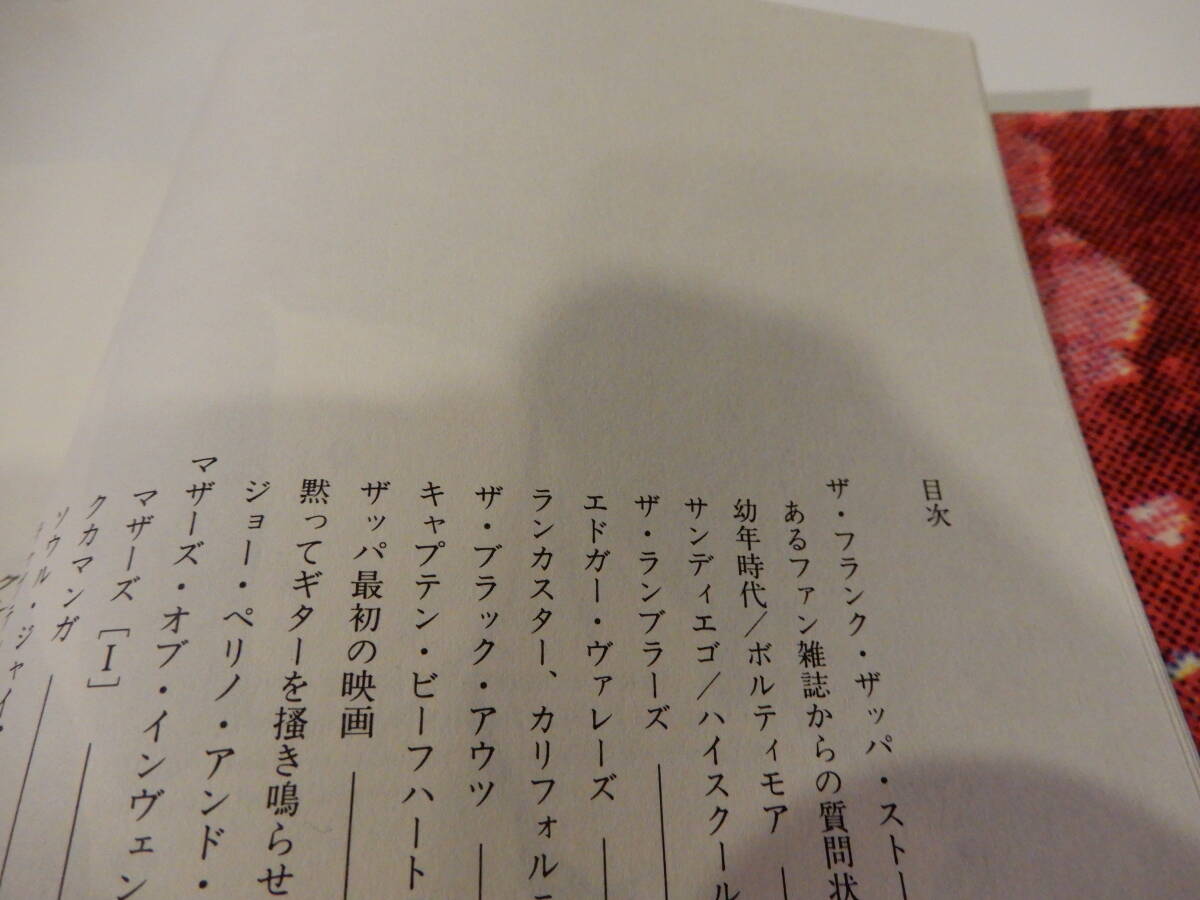 目次
ザ・フランク・ザッパ・ストー
あるファン雑誌からの質問状
幼年時代/ボルティモア
サンディエゴ/ハイスクール
ザ・ランブラーズ
エドガー・ヴァレーズ
ランカスター、カリフォル
ザ・ブラック・アウツ
キャプテン・ビーフハート
ザッパ最初の映画
黙ってギターを掻き鳴らせ
ジョー・ペリノ・アンド・
マザーズ・オブ・インヴェン
マザーズ[I]
クカマンガ
ソウル・ジャイ